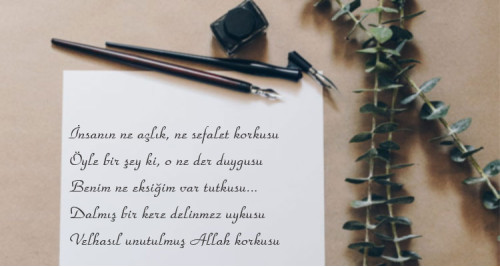 İnsanın ne açlık, ne sefalet korkusu
Öyle bir şey ki, o ne der duygusu
Benim ne eksiğim var tutkusu...
Dalmış bir kere delinmez uykusu
Velhasıl unutulmuş Allah korkusu